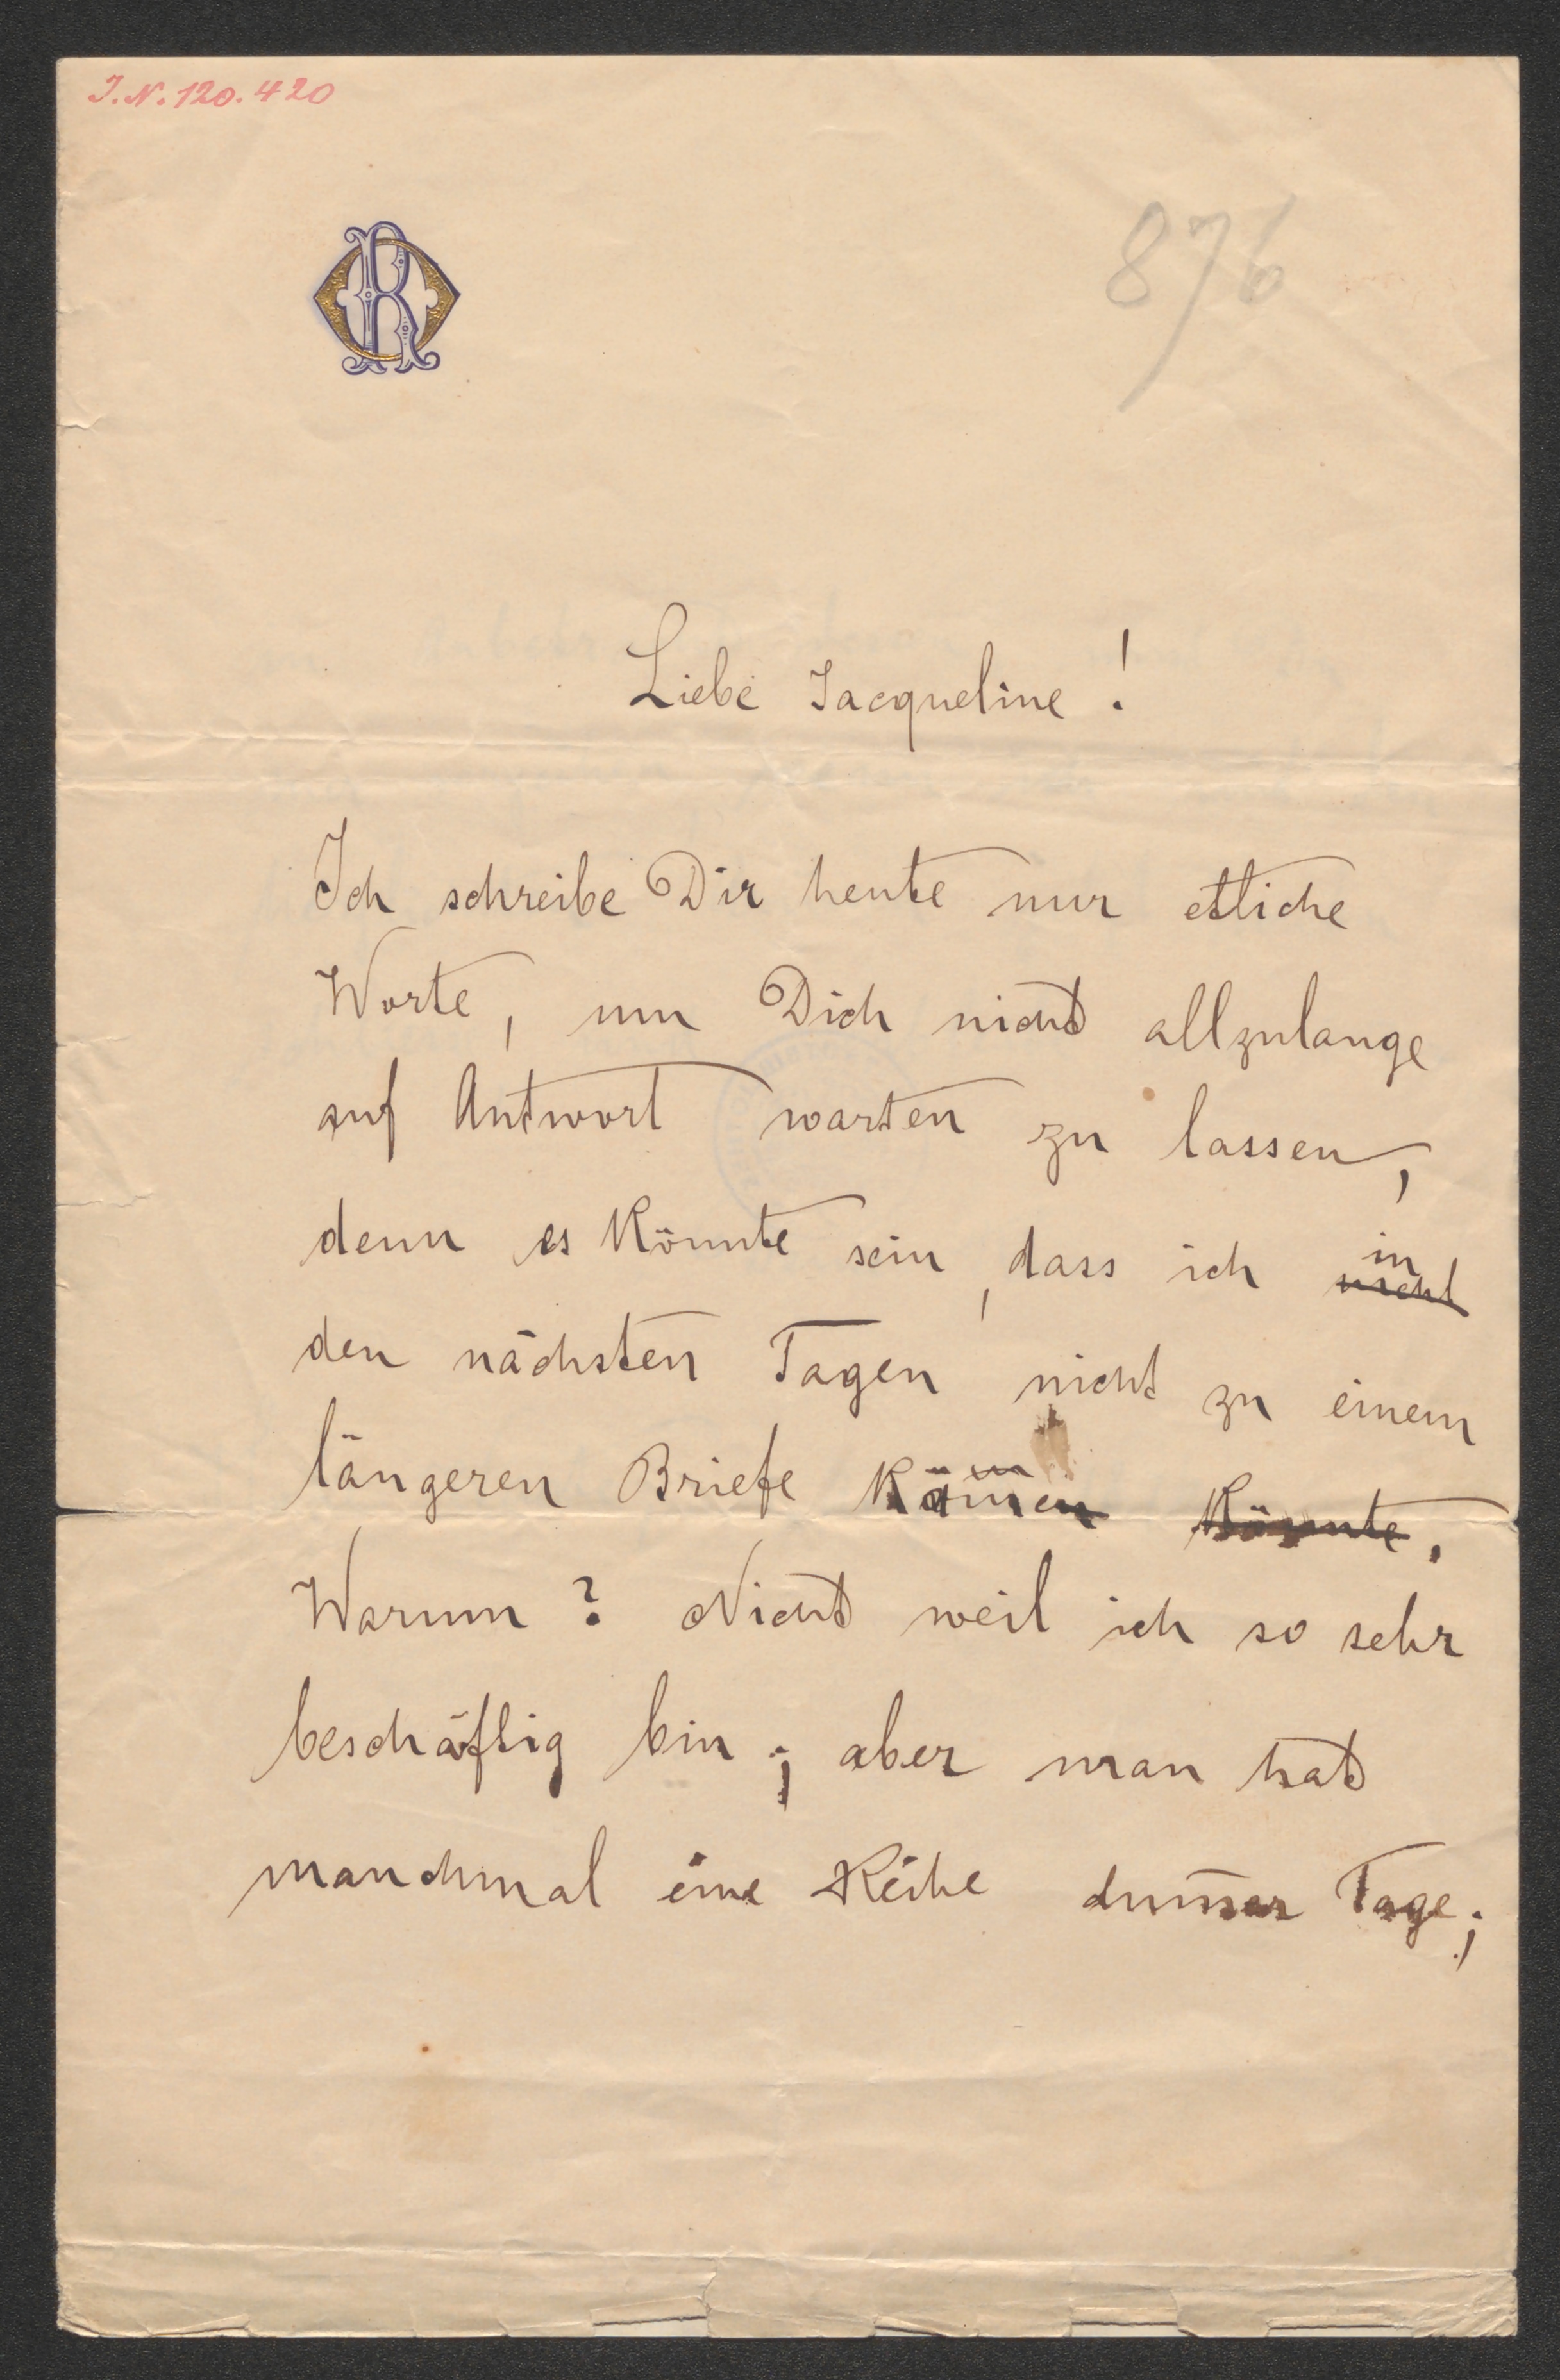 J.N. 120.420
OR
876
Liebe Jacqueline!
Ich schreibe Dir heute nur etliche
Worte, um Dich nicht allzulange
auf Antwort warten zu lassen,
denn es könnte sein, dass ich in
nicht
den nächsten Tagen nicht zu einem
längeren Briefe käm̅en könnte.
Warum? Nicht weil ich so sehr
beschäftig bin; aber man hat
manchmal eine Reihe Tage;